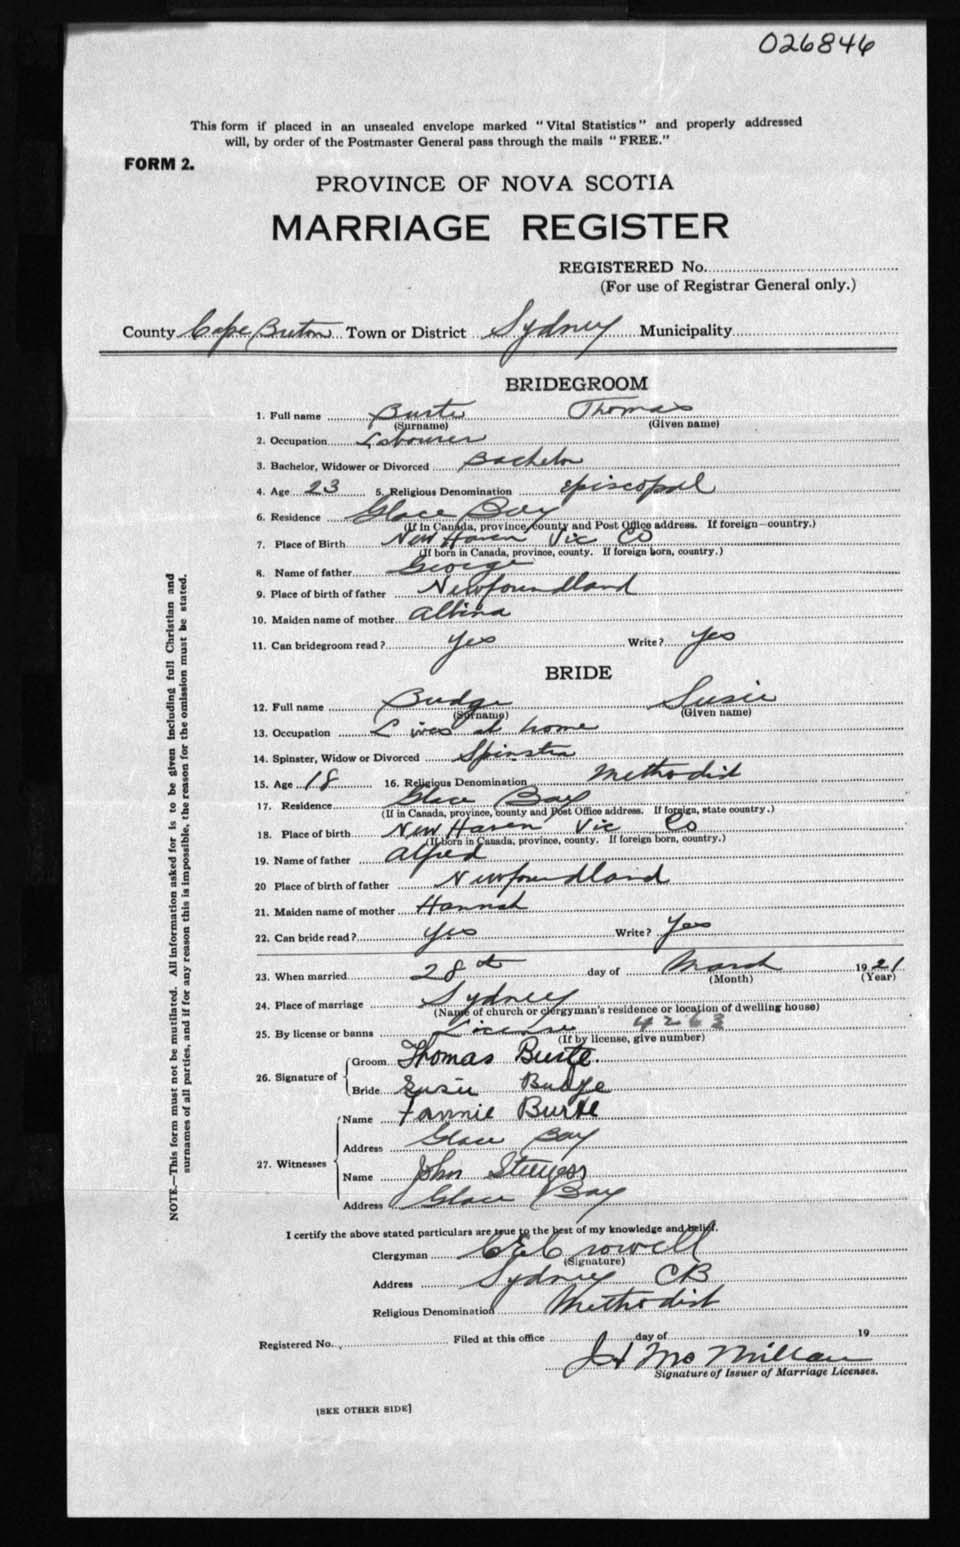 026846
This form if placed in an unsealed envelope marked "Vital Statistics" and properly addressed
will, by order of the Postmaster General pass through the mails "FREE."
FORM 2.
PROVINCE OF NOVA SCOTIA
MARRIAGE REGISTER
REGISTERED No.
(For use of Registrar General only.)
County Cape Breton Town or District Sydney Municipality
BRIDEGROOM
1. Full name Burte Thomas
(Surname) (Given name)
2. Occupation Labourer
3. Bachelor, Widower or Divorced Bachelor
4. Age 23 5. Religious Denomination Episcopal
6. Residence Glace Bay
(If in Canada, province, county and Post Office address. If foreign—country.)
7. Place of Birth New Haven Vic Co
(If born in Canada, province, county. If foreign born, country.)
8. Name of father George
9. Place of birth of father Newfoundland
10. Maiden name of mother Albina
11. Can bridegroom read? Yes Write? Yes
BRIDE
12. Full name Budge Susie
(Surname) (Given name)
13. Occupation Lives at home
14. Spinster, Widow or Divorced Spinster
15. Age 18 16. Religious Denomination Methodist
17. Residence Glace Bay
(If in Canada, province, county and Post Office address. If foreign, state country.)
18. Place of birth New Haven Vic Co
(If born in Canada, province, county. If foreign born, country.)
19. Name of father Alfred
20 Place of birth of father Newfoundland
21. Maiden name of mother Hannah
22. Can bride read? Yes Write? Yes
23. When married 28th day of March 1921
(Month) (Year)
24. Place of marriage Sydney
(Name of church or clergyman's residence or location of dwelling house)
25. By license or banns License 4263
(If by license, give number)
26. Signature of Groom Thomas Burte.
Bride Susie Budge
27. Witnesses Name Fannie Burte
Address Glace Bay
Name John
Address Glace Bay
I certify the above stated particulars are true to the best of my knowledge and belief.
Clergyman C E Crowell
(Signature)
Address Sydney CB
Religious Denomination Methodist
Registered No. Filed at this office day of 19
J H McMillan
Signature of Issuer of Marriage Licenses.
[SEE OTHER SIDE]
NOTE.—This form must not be mutilated. All information asked for is to be given including full Christian and
surnames of all parties, and if for any reason this is impossible, the reason for the omission must be stated.